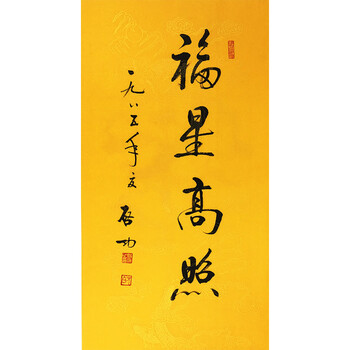 福星高照
一九八五年夏
启功